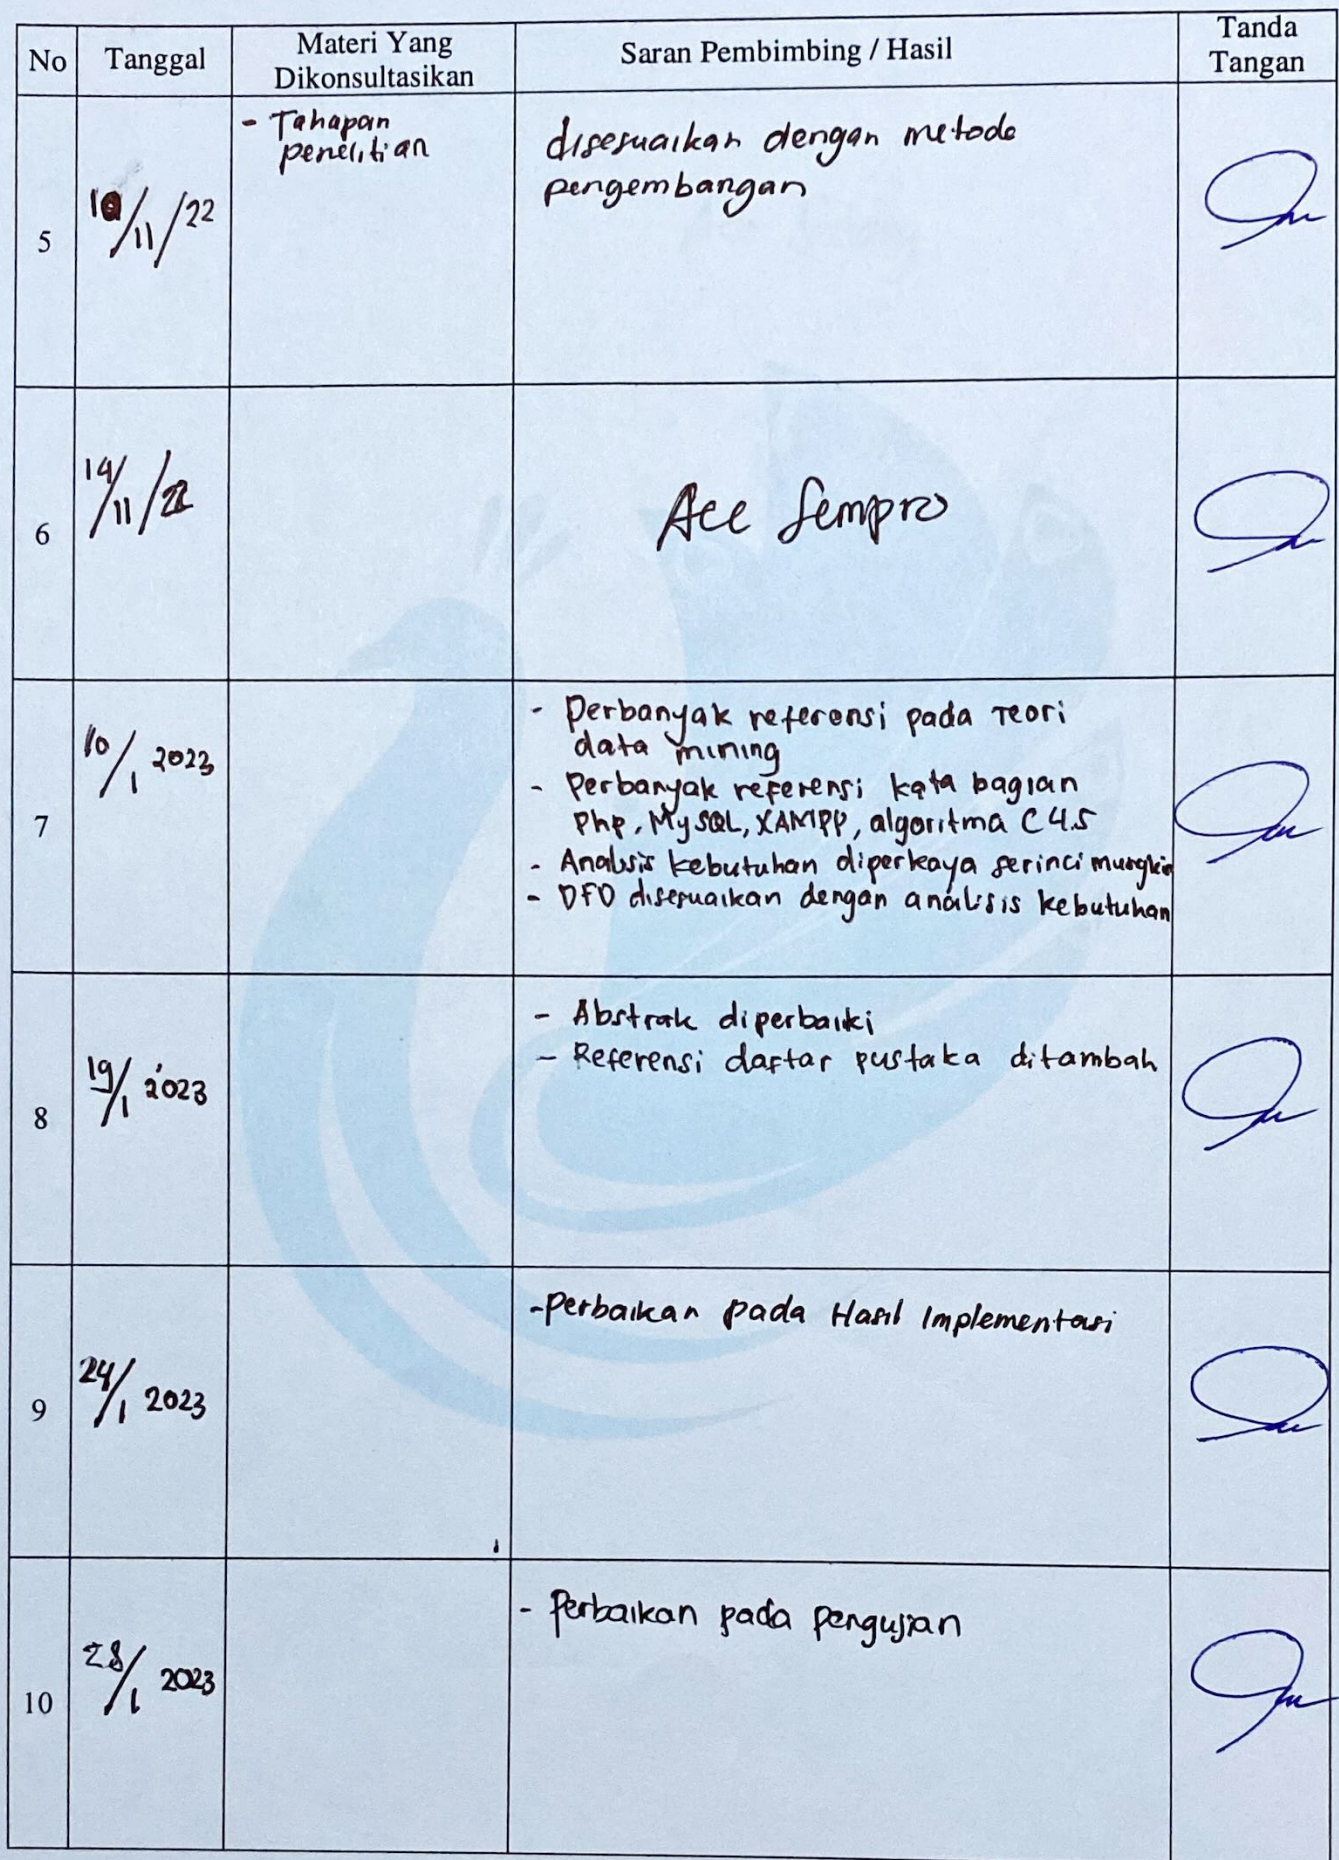 No Tanggal Materi Yang Dikonsultasikan Saran Pembimbing / Hasil Tanda Tangan
5 10/11/22
- Tahapan
penelitian
disesuaikan dengan metode
pengembangan
6 14/11/22
Acc Sempro
7 10/1 2023
- Perbanyak referensi pada Teori
data mining
- Perbanyak referensi kata bagian
Php, MySQL, XAMPP, algoritma C4.5
- Analisis kebutuhan diperkaya serinci mungkin
- DFD disesuaikan dengan analisis kebutuhan
8 19/1 2023
- Abstrak diperbaiki
- Referensi daftar pustaka ditambah
9 24/1 2023
- Perbaikan pada Hasil Implementasi
10 28/1 2023
- Perbaikan pada pengujian